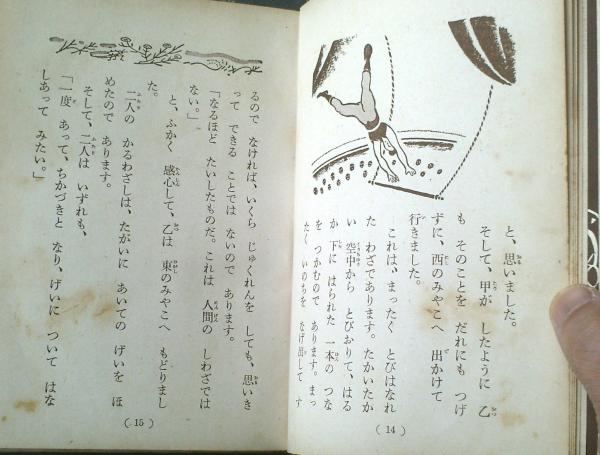 と、思いました。
そして、甲が したように 乙
も そのことを だれにも つげ
ずに、西のみやこへ 出かけて
行きました。
これは、まったく とびはなれ
た わざであります。たかいたか
い 空中から とびおりて、はる
か 下に はられた 一本の つな
を つかむので あります。まっ
たく いのちを なげ出して す
(14)
るので なければ、いくら じゅくれんを しても、思いき
って できる ことでは ないので あります。
「なるほど たいしたものだ。これは 人間の しわざでは
ない。」
と、ふかく 感心して、乙は 東のみやこへ もどりまし
た。
二人の かるわざしは、たがいに あいての げいを ほ
めたので あります。
そして、二人は いずれも、
「一度 あって、ちかづきと なり、げいに ついて はな
しあって みたい。」
(15)